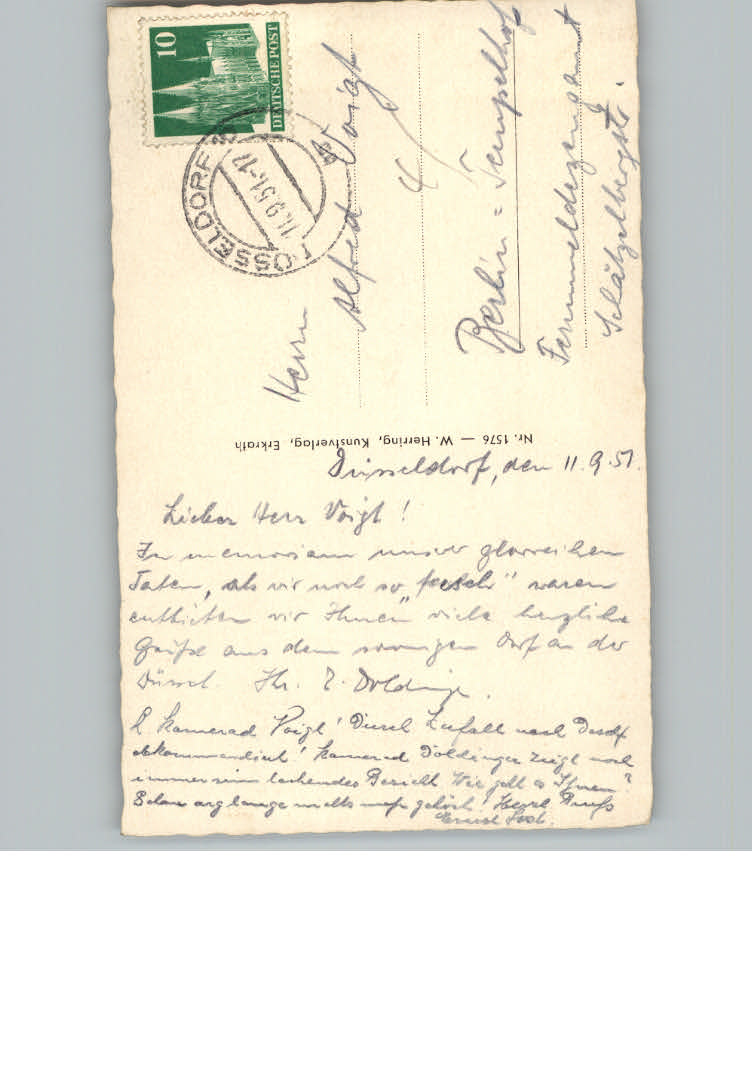 10
DEUTSCHE POST
DÜSSELDORF
11.9.51.-17
Herrn
Alfred Voigt
Berlin = Tempelhof
Fernmeldezeugamt
Schätzelbergstr.
Nr. 1576 — W. Herring, Kunstverlag, Erkrath
Düsseldorf, den 11.9.51.
Lieber Herr Voigt!
In memoriam unserer glorreichen
Taten, als wir noch so „fesch" waren
entbieten wir Ihnen viele herzliche
Grüße aus dem sonnigen Dorf an der
Düssel. Ihr Doldinger.
L. Kamerad Voigt! Durch Zufall nach Dssdf
abkommandiert! Kamerad Doldinger zeigt noch
immer sein lachendes Gesicht. Wie geht es Ihnen?
Schon arg lange nichts mehr gehört! Herzl. Gruß
Ernst